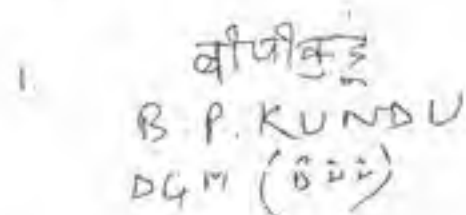 1. बीपीकुंडू
B. P. KUNDU
DGM